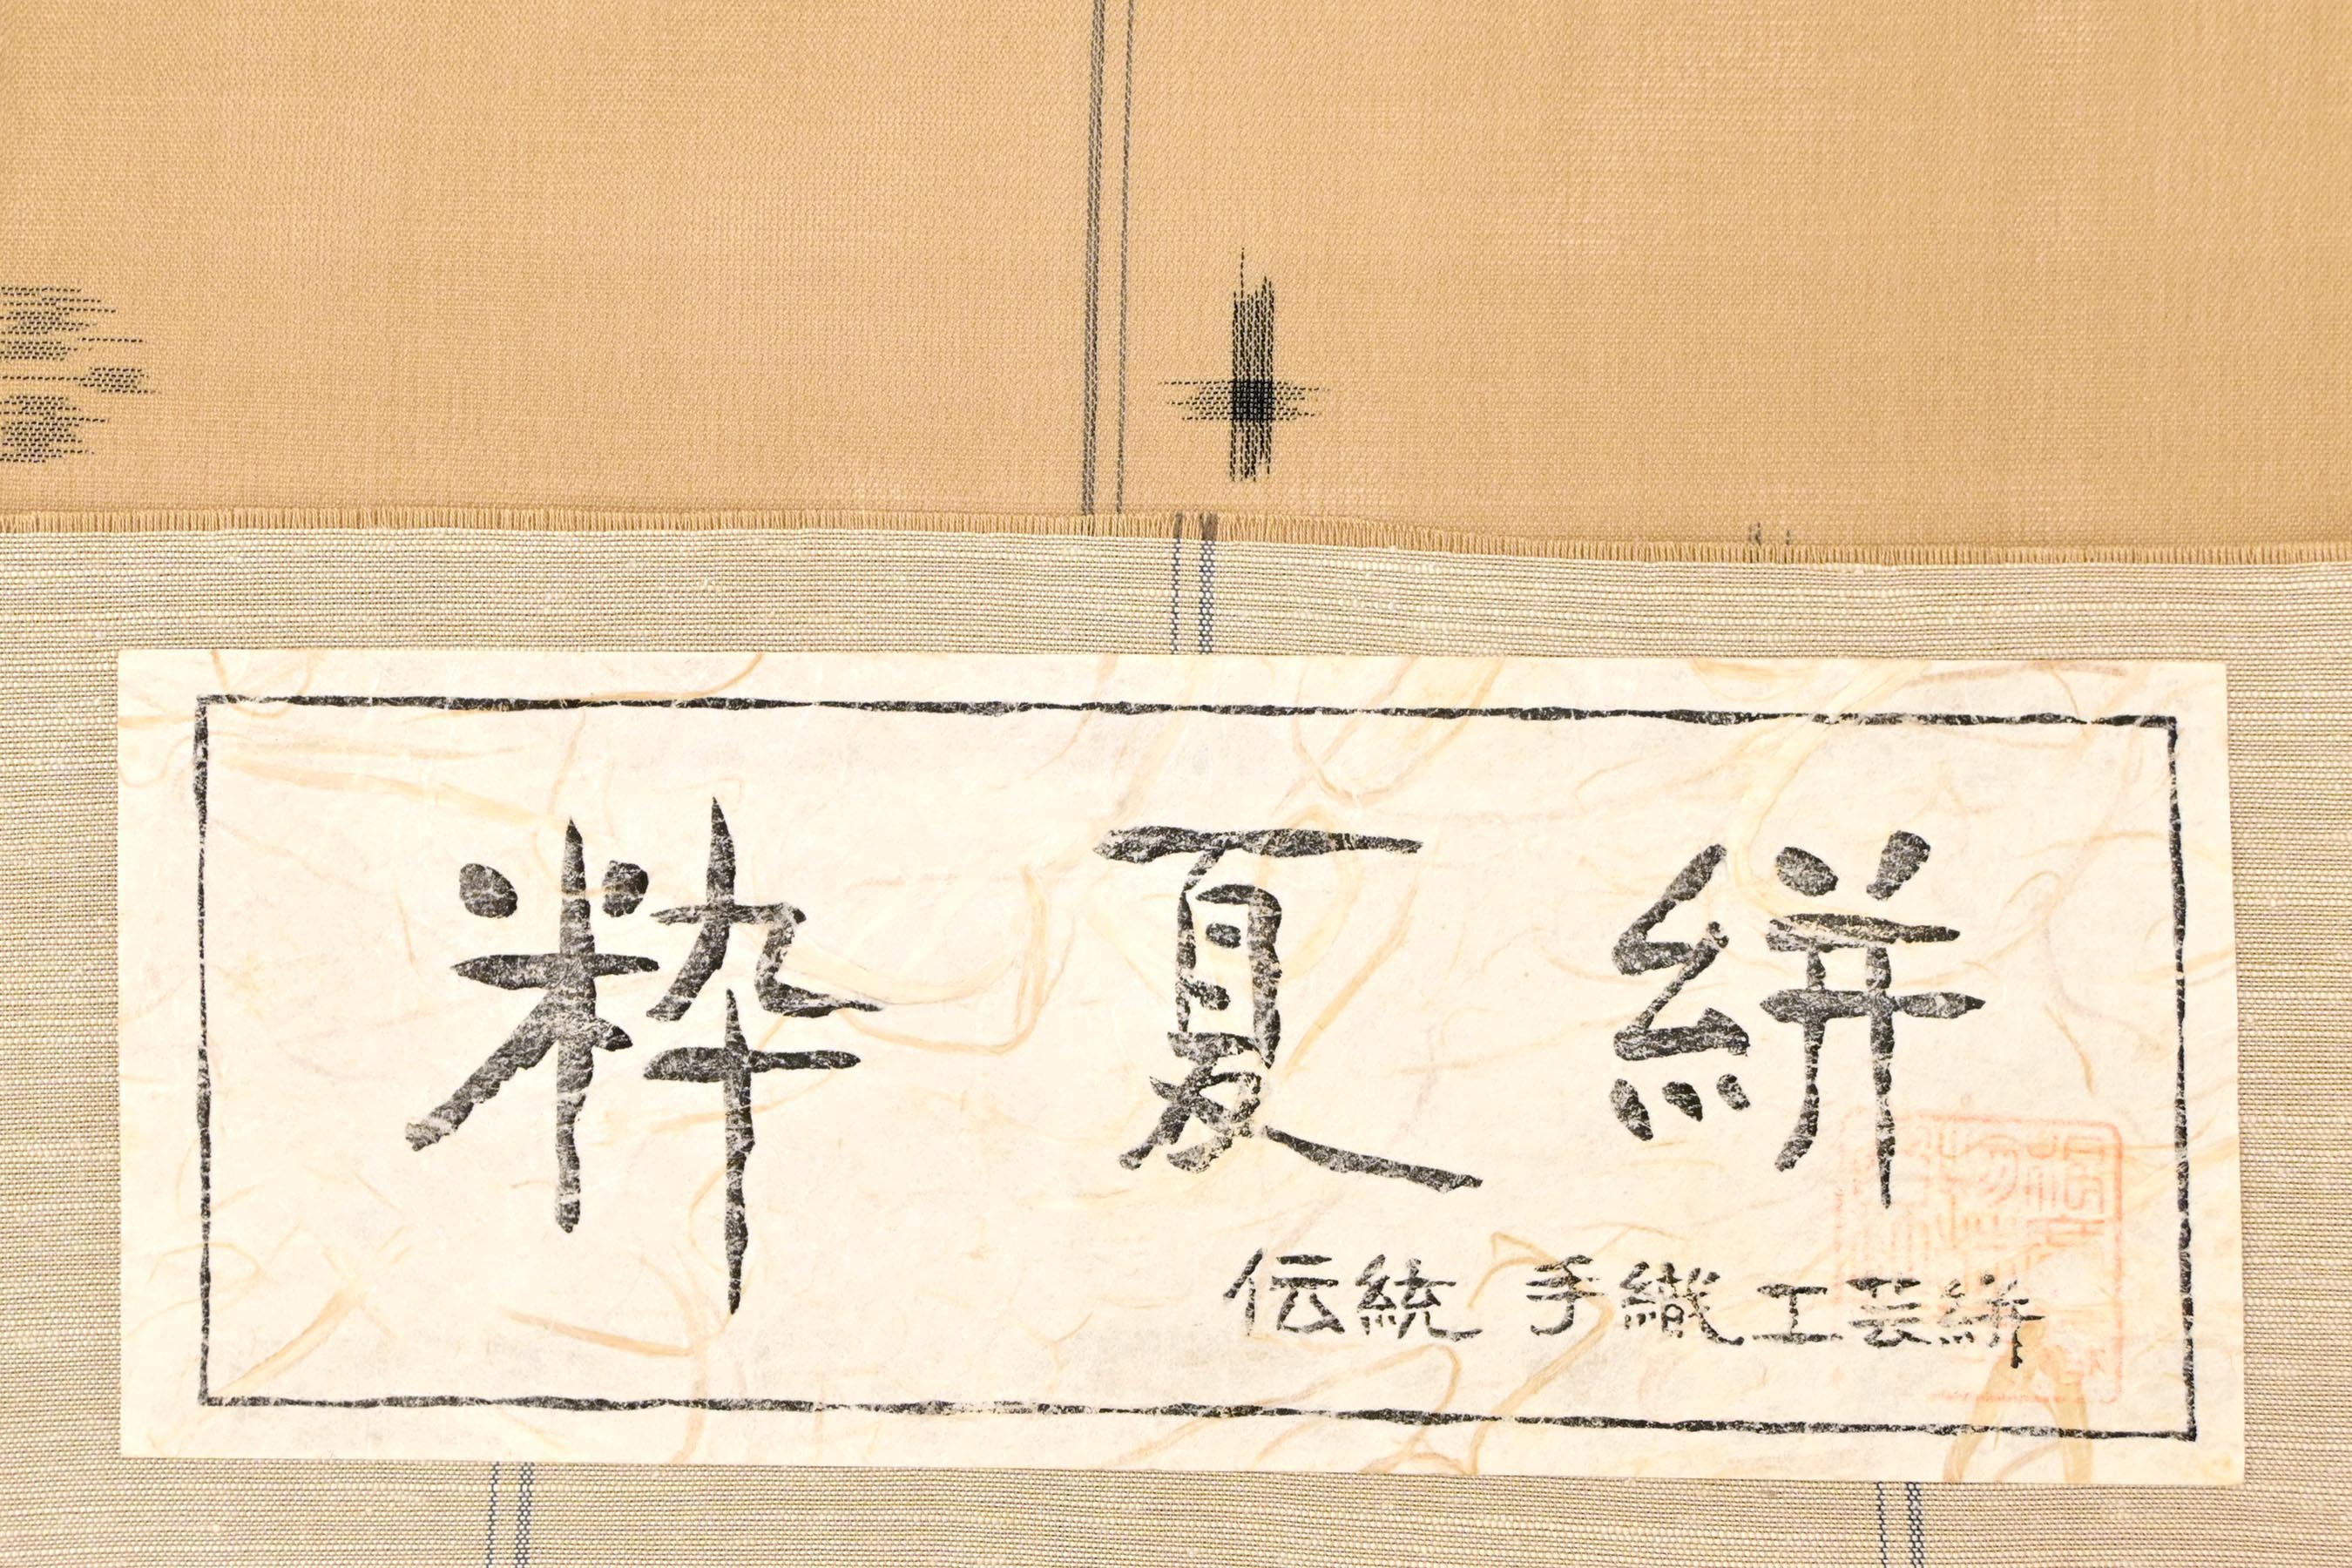 粋夏絣
伝統 手織工芸絣